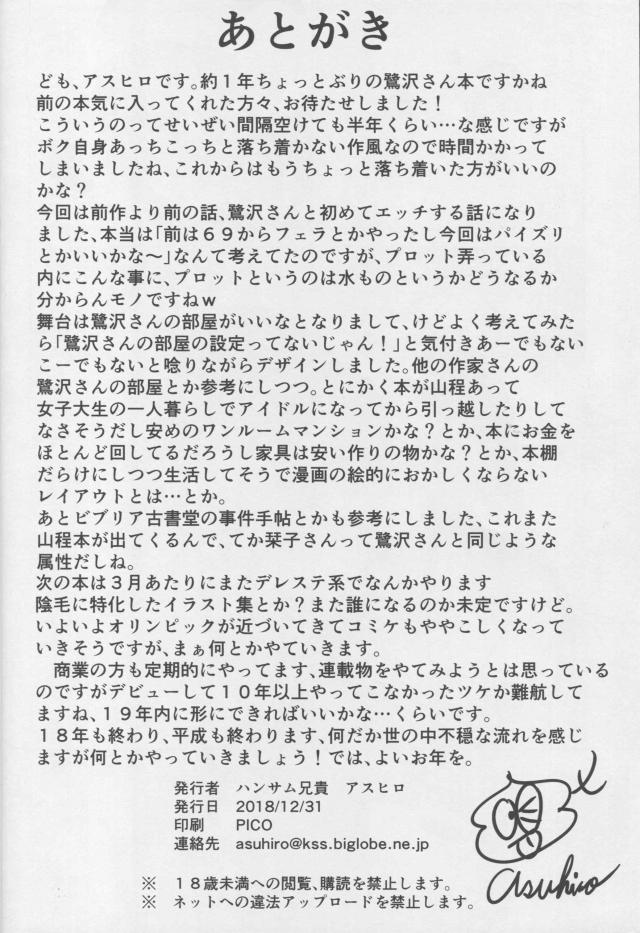 あとがき
ども、アスヒロです。約１年ちょっとぶりの鷺沢さん本ですかね
前の本気に入ってくれた方々、お待たせしました！
こういうのってせいぜい間隔空けても半年くらい…な感じですが
ボク自身あっちこっちと落ち着かない作風なので時間かかって
しまいましたね、これからはもうちょっと落ち着いた方がいいの
かな？
今回は前作より前の話、鷺沢さんと初めてエッチする話になり
ました、本当は「前は６９からフェラとかやったし今回はパイズリ
とかいいかな〜」なんて考えてたのですが、プロット弄っている
内にこんな事に、プロットというのは水ものというかどうなるか
分からんモノですねｗ
舞台は鷺沢さんの部屋がいいなとなりまして、けどよく考えてみた
ら「鷺沢さんの部屋の設定ってないじゃん！」と気付きあーでもない
こーでもないと唸りながらデザインしました。他の作家さんの
鷺沢さんの部屋とか参考にしつつ。とにかく本が山程あって
女子大生の一人暮らしでアイドルになってから引っ越したりして
なさそうだし安めのワンルームマンションかな？とか、本にお金を
ほとんど回してるだろうし家具は安い作りの物かな？とか、本棚
だらけにしつつ生活してそうで漫画の絵的におかしくならない
レイアウトとは…とか。
あとビブリア古書堂の事件手帖とかも参考にしました、これまた
山程本が出てくるんで、てか栞子さんって鷺沢さんと同じような
属性だしね。
次の本は３月あたりにまたデレステ系でなんかやります
陰毛に特化したイラスト集とか？また誰になるのか未定ですけど。
いよいよオリンピックが近づいてきてコミケもややこしくなって
いきそうですが、まぁ何とかやていきます。
　商業の方も定期的にやってます、連載物をやてみようとは思っている
のですがデビューして１０年以上やってこなかったツケか難航して
ますね、１９年内に形にできればいいかな…くらいです。
１８年も終わり、平成も終わります、何だか世の中不穏な流れを感じ
ますが何とかやっていきましょう！では、よいお年を。
発行者　ハンサム兄貴　アスヒロ
発行日　2018/12/31
印刷　PICO
連絡先　asuhiro@kss.biglobe.ne.jp
asuhiro
※　１８歳未満への閲覧、購読を禁止します。
※　ネットへの違法アップロードを禁止します。